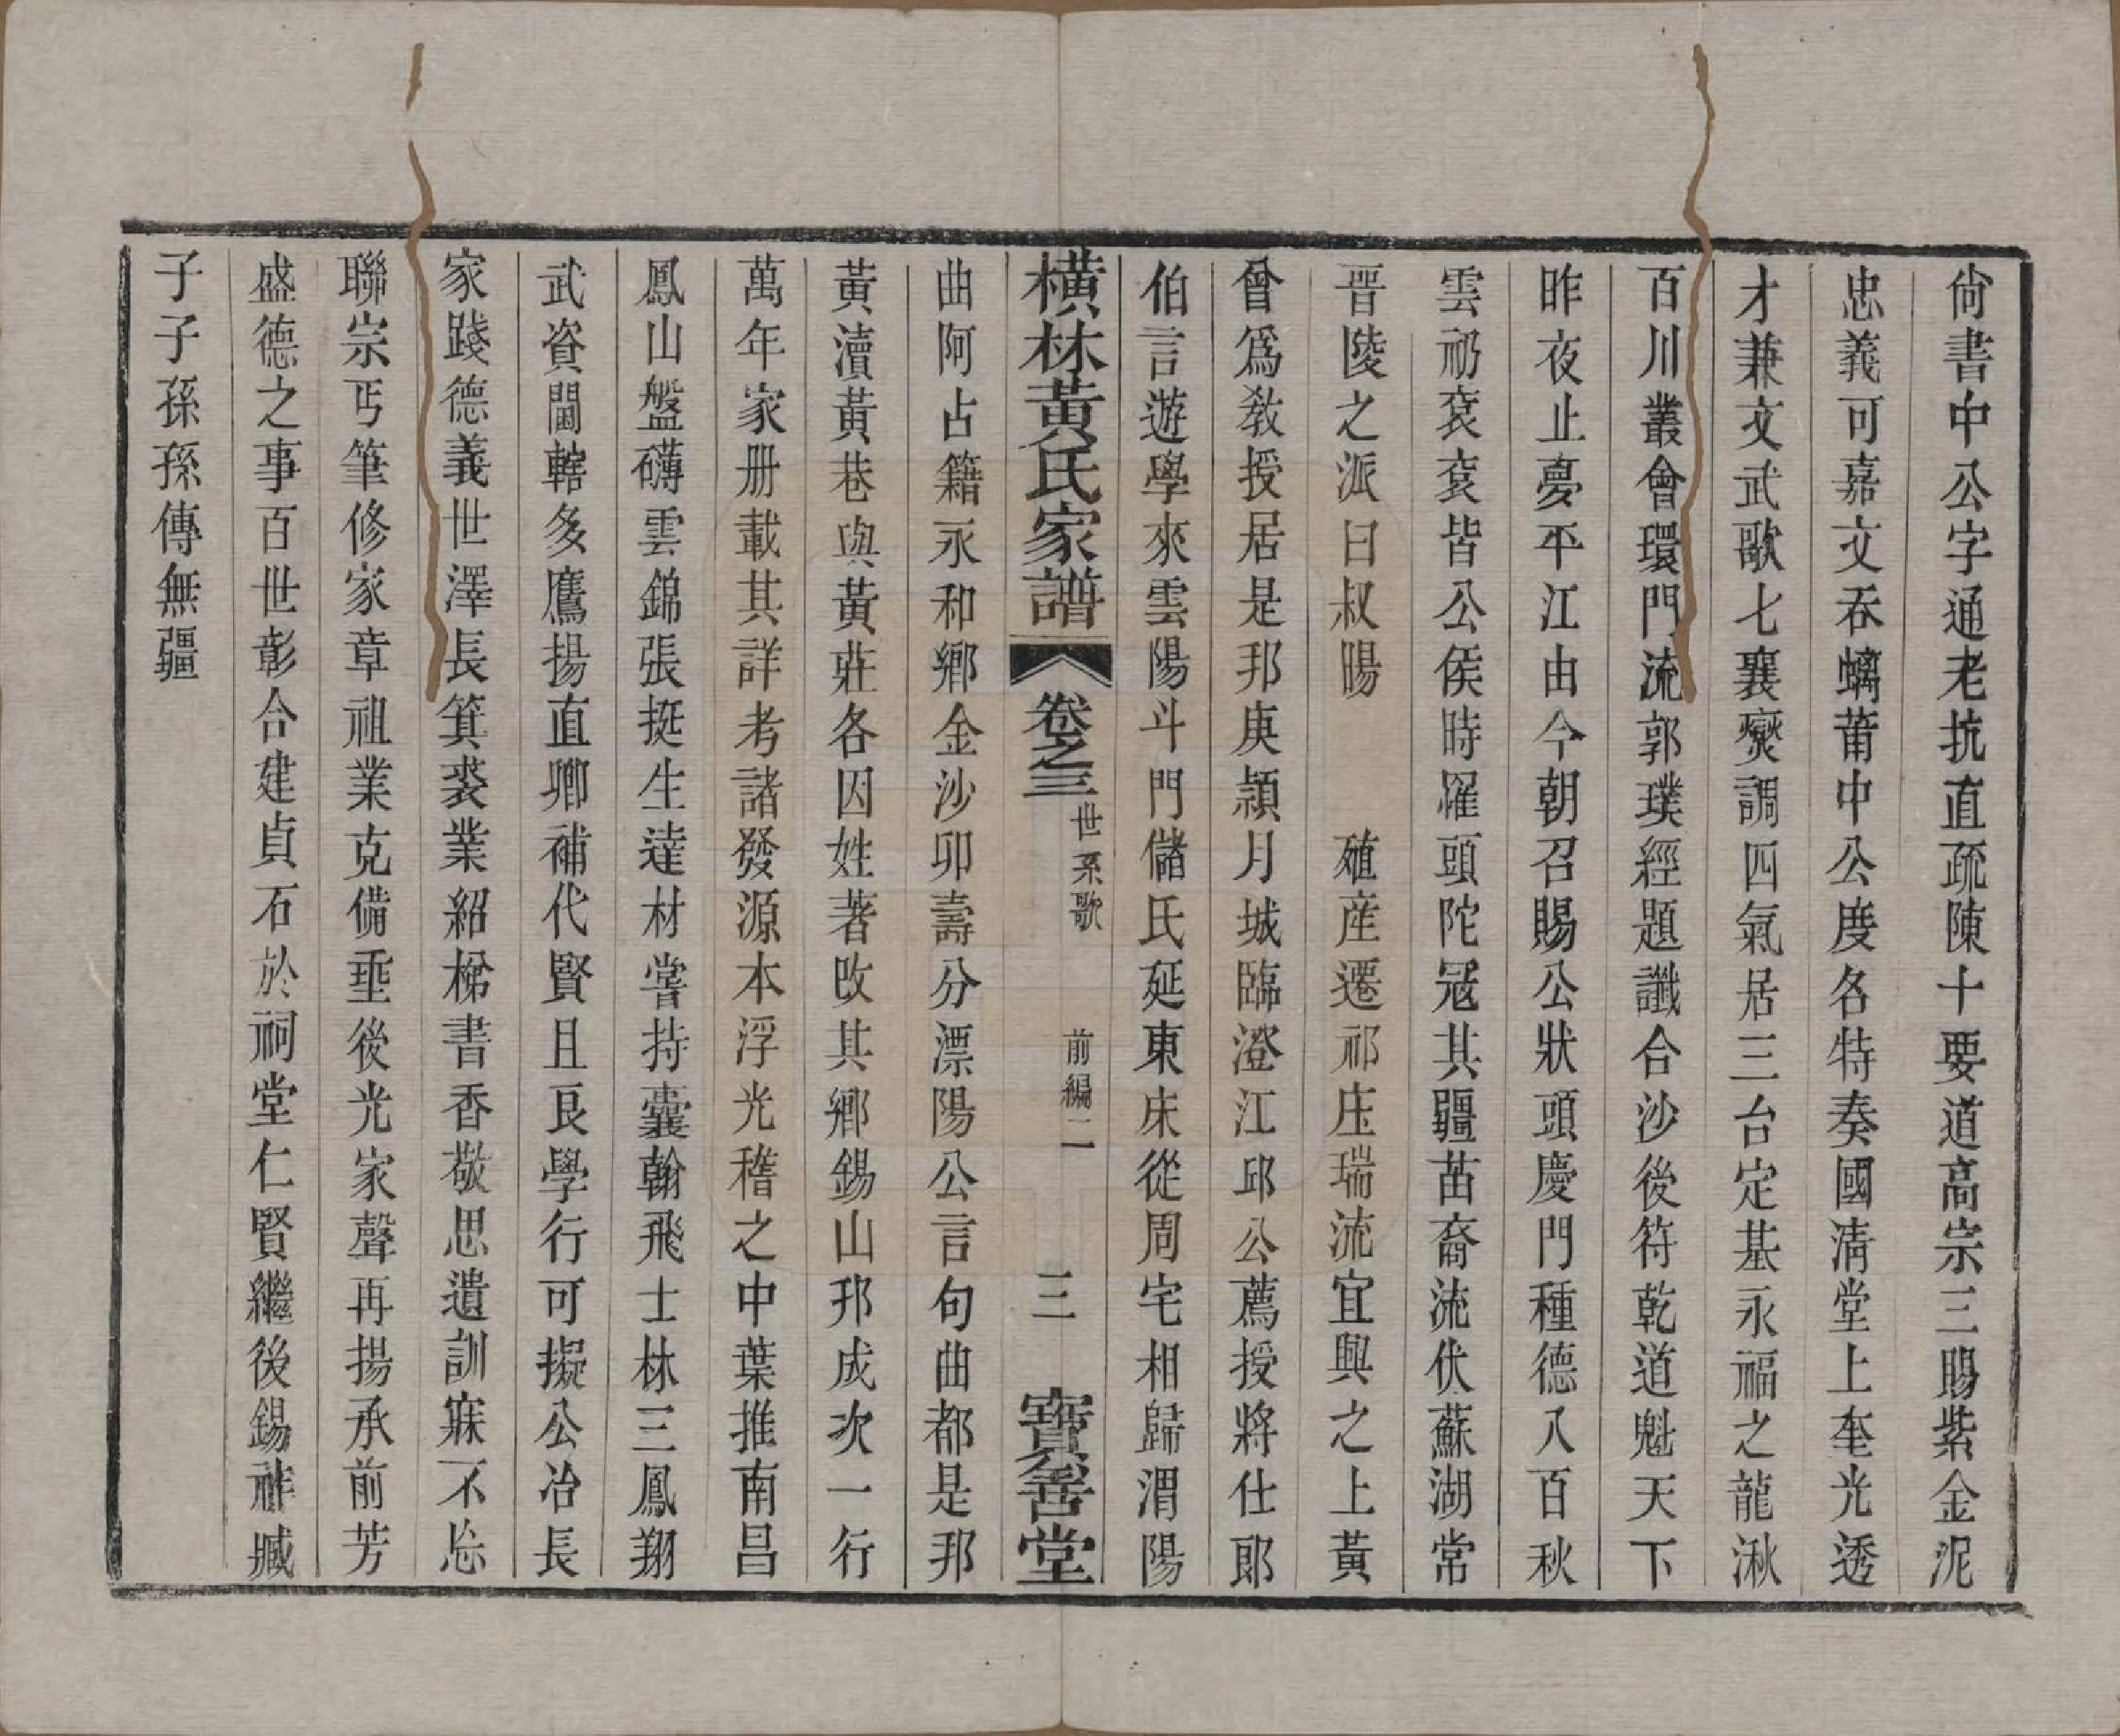 尙書中公字通老抗直疏陳十要道高宗三賜紫金泥
忠義可嘉文吞螭莆中公度各特奏國淸堂上奎光透
才兼文武歌七襄燮調四氣居三台定基永福之龍湫
百川叢會環門流郭璞經題讖合沙後符乾道魁天下
昨夜止夢平江由今朝召賜公狀頭慶門種德八百秋
雲礽袞袞皆公侯時羅頭陀冠其疆苗裔流伏蘇湖常
晉陵之派曰叔暘 殖産遷祁庄瑞流宜興之上黃
曾爲敎授居是邦庚頴月城臨澄江邱公薦授將仕郞
伯言遊學來雲陽斗門儲氏延東床從周宅相歸渭陽
橫林黃氏家譜 卷之三 世系歌 前編二 三 寶善堂
曲阿占籍永和鄉金沙卯壽分漂陽公言句曲都是邦
黃瀆黃巷與黃莊各因姓著改其鄉錫山邦成次一行
萬年家册載其詳考諸發源本浮光稽之中葉推南昌
鳳山盤礴雲錦張挺生達材嘗持囊翰飛士林三鳳翔
武資閫轄多鷹揚直卿補代賢且良學行可擬公冶長
家踐德義世澤長箕裘業紹梯書香敬思遺訓寐不忘
聯宗丐筆修家章祖業克備垂後光家聲再揚承前芳
盛德之事百世彰合建貞石於祠堂仁賢繼後錫祚臧
子子孫孫傳無疆